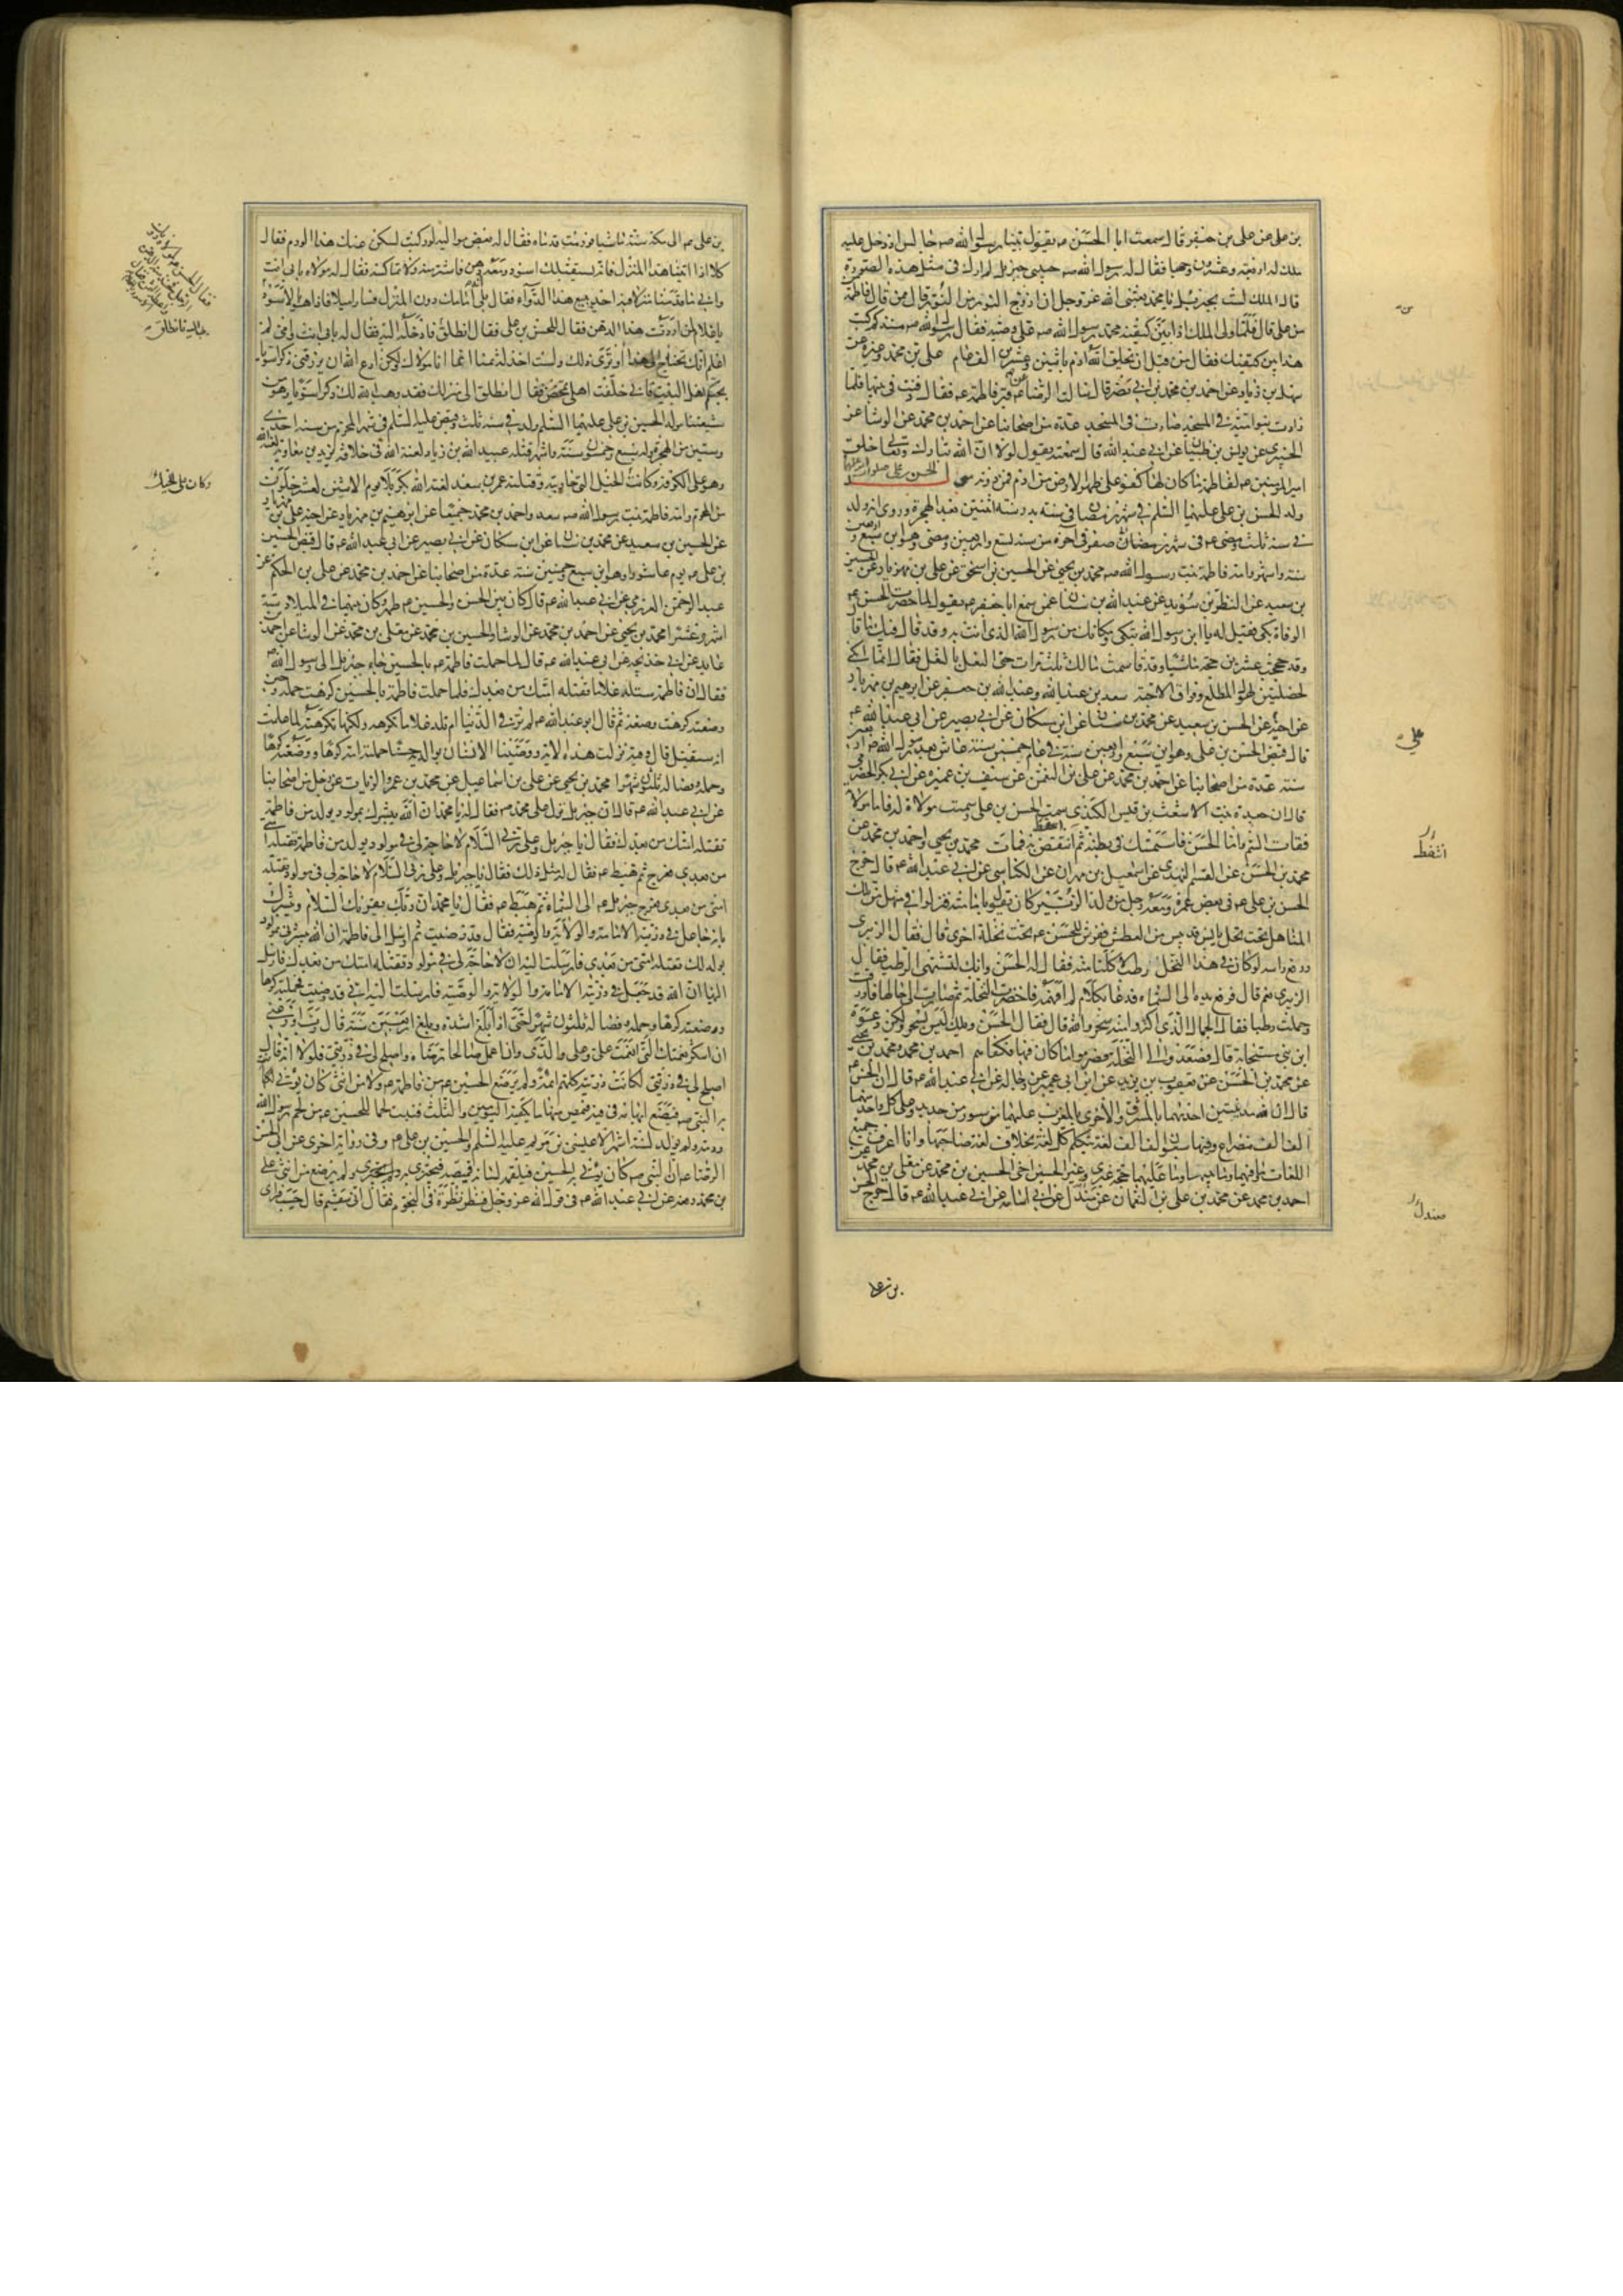 بن علی عن علی بن جعفر قال سمعت ابا الحسن ع يقول بينا رسول الله ص جالس اذ دخل عليه
ملك له اربعة وعشرون وجها فقال له رسول الله ص حبيبى جبرئيل لم ارك فى مثل هذه الصورة
قال الملك لست بجبرئيل يا محمد بعثنى الله عز وجل ان ازوج النور من النور قال من قال فاطمة
من على قال فلما ولى الملك اذا بين كتفيه محمد رسول الله ص على وصيه فقال رسول الله ص منذ كم كتب
هذا بين كتفيك فقال من قبل ان يخلق الله ادم باثنين وعشرين الف عام على بن محمد وغيره عن
سهل بن زياد عن احمد بن محمد بن ابى نصر قال سالت الرضا ع عن قبر فاطمة ع فقال دفنت فى بيتها فلما
زادت بنو امية فى المسجد صارت فى المسجد عدة من اصحابنا عن احمد بن محمد عن الوشا عن
الخيبرى عن يونس بن ظبيان عن ابى عبد الله قال سمعته يقول لولا ان الله تبارك وتعالى خلق
امير المؤمنين ع لفاطمة ما كان لها كفو على ظهر الارض من ادم فمن دونه الحسن بن على صلوات
ولد الحسن بن على عليهما السلم فى شهر رمضان فى سنة بدر سنة اثنتين بعد الهجرة وروى انه ولد
فى سنة ثلث ومضى ع فى شهر رمضان صفر فى آخره من سنة تسع واربعين ومضى وهو ابن سبع واربعين
سنة واشهر وامه فاطمة بنت رسول الله ص محمد بن يحيى عن الحسين بن اسحق عن على بن مهزيار عن الحسين
بن سعيد عن النضر بن سويد عن عبد الله بن سنان عمن سمع ابا جعفر ع يقول لما حضرت الحسن ع
الوفاة بكى فقيل له يا ابن رسول الله تبكى ومكانك من رسول الله الذى انت به وقد قال فيك ما قال
وقد حججت عشرين حجة ماشيا وقد قاسمت مالك ثلث مرات حتى النعل بالنعل فقال انما ابكى
لخصلتين لهول المطلع وفراق الاحبة سعد بن عبد الله وعبد الله بن جعفر عن ابرهيم بن مهزيار
عن اخيه عن الحسن بن سعيد عن محمد بن سنان عن ابن مسكان عن ابى بصير عن ابى عبد الله ع
قال قبض الحسن بن على وهو ابن سبع واربعين سنة فى عام خمسين سنة عاش بعد رسول الله ص اربعين
سنة عدة من اصحابنا عن احمد بن محمد عن على بن النعمن عن سيف بن عميرة عن ابى بكر الحضرمى
قال ان جعدة بنت الاشعث بن قيس الكندى سمت الحسن بن على وسمت مولاة له فاما مولاته
فقاءت السم واما الحسن فاستمسك فى بطنه ثم انتفض به فمات محمد بن يحيى واحمد بن محمد عن
محمد بن الحسن عن القسم النهدى عن اسمعيل بن مهران عن الكناسى عن ابى عبد الله ع قال خرج
الحسن بن على ع فى بعض عمره ومعه رجل من ولد الزبير كان يقول بامامته فنزلوا فى منهل من تلك
المناهل تحت نخل يابس قد يبس من العطش ففرش للحسن ع تحت نخلة وللزبيرى تحت نخلة اخرى قال فقال الزبيرى
ورفع راسه لو كان فى هذا النخل رطب لاكلنا منه فقال له الحسن وانك لتشتهى الرطب فقال
الزبيرى نعم قال فرفع يده الى السماء فدعا بكلام لم افهمه فاخضرت النخلة ثم صارت الى حالها فاورقت
وحملت رطبا فقال الجمال الذى اكتروا منه سحر والله قال فقال الحسن ويلك ليس بسحر ولكن دعوة
ابن نبى مستجابة قال فصعدوا الى النخلة فصرموا ما كان فيها فكفاهم احمد بن محمد ومحمد بن يحيى
عن محمد بن الحسن عن يعقوب بن يزيد عن ابن ابى عمير عن رجاله عن ابى عبد الله ع قال ان الحسن ع
قال ان لله مدينتين احديهما بالمشرق والاخرى بالمغرب عليهما سور من حديد وعلى كل واحد منهما
الف الف مصراع وفيها سبعون الف الف لغة يتكلم كل لغة بخلاف لغة صاحبها وانا اعرف جميع
اللغات وما فيهما وما بينهما وما عليهما حجة غيرى وغير الحسين اخى الحسين بن محمد عن معلى بن محمد عن
احمد بن محمد عن محمد بن على بن النعمان عن صندل عن ابى اسامة عن ابى عبد الله ع قال خرج الحسن
على
انتقط
صندل
بن على
بن على ع الى مكة سنة ماشيا فورمت قدماه فقال له بعض مواليه لو ركبت لسكن عنك هذا الورم فقال
كلا اذا اتينا هذا المنزل فانه يستقبلك اسود ومعه دهن فاشتر منه ولا تماكسه فقال له مولاه بابى انت
وامى ما قدمنا منزلا فيه احد يبيع هذا الدواء فقال بلى انه امامك دون المنزل فسارا ميلا فاذا هو بالاسود
يا غلام لمن اردت هذا الدهن فقال للحسن بن على فقال انطلق بى فادخله اليه فقال له بابى انت وامى لم
اعلم انك تحتاج الى هذا او ترى ذلك ولست اخذ له ثمنا انما انا مولاك ولكن ادع الله ان يرزقنى ذكرا سويا
يحبكم اهل البيت فانى خلفت اهلى تمخض فقال انطلق الى منزلك فقد وهب الله لك ذكرا سويا وهو من
شيعتنا مولد الحسين بن على عليهما السلم ولد فى سنة ثلث وقبض عليه السلم فى شهر المحرم من سنة احدى
وستين من الهجرة وله سبع وخمسون سنة واشهر قتله عبيد الله بن زياد لعنه الله فى خلافة يزيد بن معاوية لعنه الله
وهو على الكوفة وكانت الخيل التى حاربته وقتلته عمر بن سعد لعنه الله بكربلا يوم الاثنين لعشر خلون
من المحرم وامه فاطمة بنت رسول الله ص سعد واحمد بن محمد جميعا عن ابرهيم بن مهزيار عن اخيه على بن مهزيار
عن الحسين بن سعيد عن محمد بن سنان عن ابن مسكان عن ابى بصير عن ابى عبد الله ع قال قبض الحسين
بن على ع يوم عاشورا وهو ابن سبع وخمسين سنة عدة من اصحابنا عن احمد بن محمد عن على بن الحكم عن
عبد الرحمن العرزمى عن ابى عبد الله ع قال كان بين الحسن والحسين ع طهر وكان بينهما فى الميلاد ستة
اشهر وعشرا محمد بن يحيى عن احمد بن محمد عن الوشا والحسين بن محمد عن معلى بن محمد عن الوشا عن احمد بن
عايذ عن ابى خديجة عن ابى عبد الله ع قال لما حملت فاطمة ع بالحسين جاء جبرئيل الى رسول الله ص
فقال ان فاطمة ستلد غلاما تقتله امتك من بعدك فلما حملت فاطمة بالحسين كرهت حمله وحين
وضعته كرهت وضعه ثم قال ابو عبد الله ع لم تر فى الدنيا ام تلد غلاما تكرهه ولكنها كرهته لما علمت
انه سيقتل قال وفيه نزلت هذه الاية ووصينا الانسان بوالديه حسنا حملته امه كرها ووضعته كرها
وحمله وفصاله ثلثون شهرا محمد بن يحيى عن على بن اسماعيل عن محمد بن عمرو الزيات عن رجل من اصحابنا
عن ابى عبد الله ع قال ان جبرئيل نزل على محمد ص فقال له يا محمد ان الله يبشرك بمولود يولد من فاطمة
تقتله امتك من بعدك فقال يا جبرئيل وعلى ربى السلام لا حاجة لى فى مولود يولد من فاطمة تقتله امتى
من بعدى فعرج ثم هبط ع فقال له مثل ذلك فقال يا جبرئيل وعلى ربى السلام لا حاجة لى فى مولود تقتله
امتى من بعدى فعرج جبرئيل ع الى السماء ثم هبط ع فقال يا محمد ان ربك يقرئك السلام ويبشرك
بانه جاعل فى ذريته الامامة والولاية والوصية فقال قد رضيت ثم ارسل الى فاطمة ان الله يبشرنى بمولود
يولد لك تقتله امتى من بعدى فارسلت اليه ان لا حاجة لى فى مولود تقتله امتك من بعدك فارسل
اليها ان الله قد جعل فى ذريته الامامة والولاية والوصية فارسلت اليه انى قد رضيت فحملته كرها
ووضعته كرها وحمله وفصاله ثلثون شهرا حتى اذا بلغ اشده وبلغ اربعين سنة قال رب اوزعنى
ان اشكر نعمتك التى انعمت على وعلى والدى وان اعمل صالحا ترضاه واصلح لى فى ذريتى فلولا انه قال
اصلح لى فى ذريتى لكانت ذريته كلهم ائمة ولم يرضع الحسين ع من فاطمة ع ولا من انثى كان يؤتى
به النبى ص فيضع ابهامه فى فيه فيمص منها ما يكفيه اليومين والثلث فنبت لحما للحسين ع من لحم رسول الله
ودمه ولم يولد لستة اشهر الا عيسى بن مريم عليه السلم والحسين بن على ع وفى رواية اخرى عن ابى الحسن
الرضا ع ان النبى ص كان يؤتى به الحسين فيلقمه لسانه فيمصه فيجتزى به ولم يرضع من انثى على
بن محمد رفعه عن ابى عبد الله ع فى قول الله عز وجل فنظر نظرة فى النجوم فقال انى سقيم قال حسب فراى
وكان على تلك